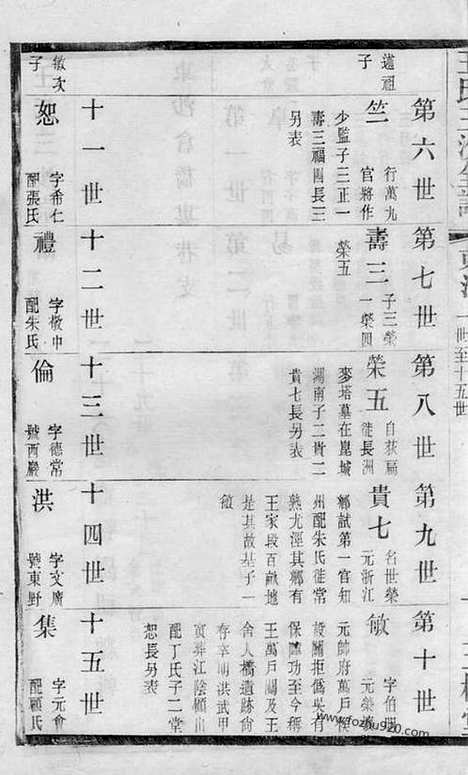 王氏三沙全譜
東沙
一世至十五世
第六世
遠祖子
竺
行萬九
官將作
少監子三正一
壽三福四長三
另表
第七世
壽三
子三榮
一榮四
榮五
第八世
榮五
自荻扁
徙長洲
麥塔墓在崑城
湖南子二貴二
貴七長另表
第九世
貴七
名世榮
元浙江
鄉試第一官知
州配朱氏徙常
熟尤涇其鄉有
王家段百畝地
是其故基子一
敏
第十世
敏
字伯
元榮
元帥府萬戶侯
設關拒僞吳有
保障功至今稱
王萬戶關及王
舍人橋遺跡尙
存卒明洪武甲
寅葬江陰顧山
配丁氏子二堂
恕長另表
十一世
敏次子
恕
字希仁
配張氏
十二世
禮
字敬中
配朱氏
十三世
倫
字德常
號西巖
十四世
洪
字文廣
號東野
十五世
集
字元會
配顧氏
三槐堂
www.fozhu920.com